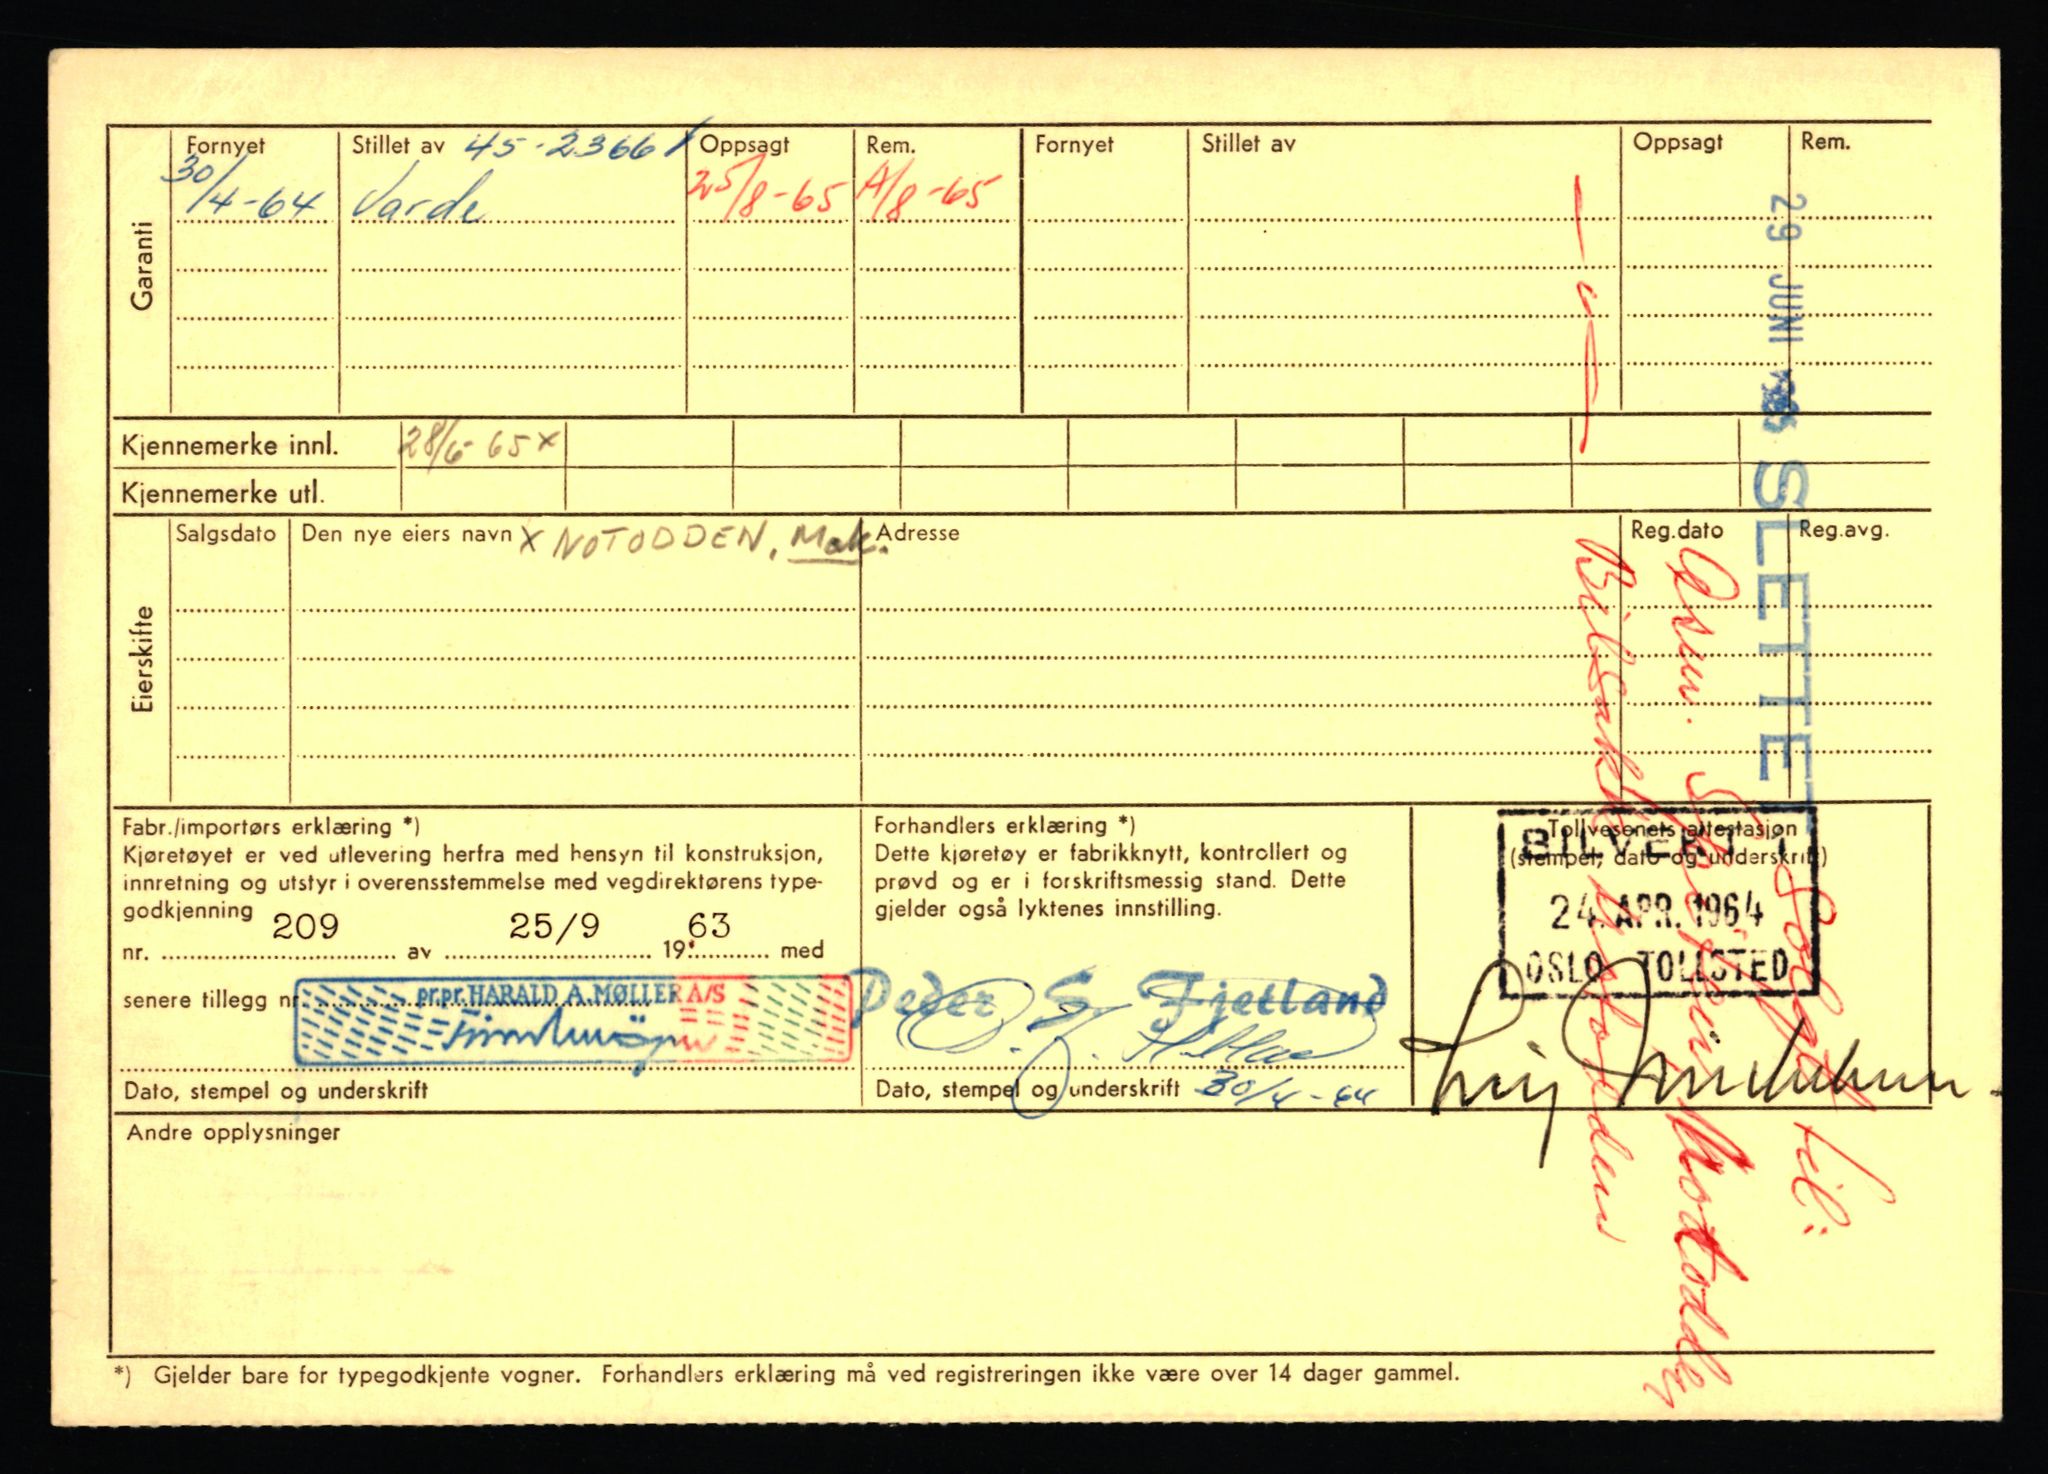 Garanti
Fornyet
Stillet av 45-23661
Oppsagt
Rem.
Fornyet
Stillet av
Oppsagt
Rem.
30/4-64 Varde 25/8-65 A/8-65
Kjennemerke innl. 28/6-65 x
Kjennemerke utl.
Eierskifte
Salgsdato
Den nye eiers navn x NOTODDEN, Mak.
Adresse
Reg.dato
Reg.avg.
29 JUNI
SLETTET
Solgt til:
Notodden
Notodden
Fabr./importørs erklæring *)
Kjøretøyet er ved utlevering herfra med hensyn til konstruksjon,
innretning og utstyr i overensstemmelse med vegdirektørens type-
godkjenning
nr. 209 av 25/9 19 63 med
senere tillegg nr.
pr.pr. HARALD A. MØLLER A/S
Dato, stempel og underskrift
Forhandlers erklæring *)
Dette kjøretøy er fabrikknytt, kontrollert og
prøvd og er i forskriftsmessig stand. Dette
gjelder også lyktenes innstilling.
Peder S. Fjetland
Dato, stempel og underskrift 30/4-64
Tollvesenets attestasjon
(stempel, dato og underskrift)
BILVERK
24. APR. 1964
OSLO TOLLSTED
Andre opplysninger
*) Gjelder bare for typegodkjente vogner. Forhandlers erklæring må ved registreringen ikke være over 14 dager gammel.